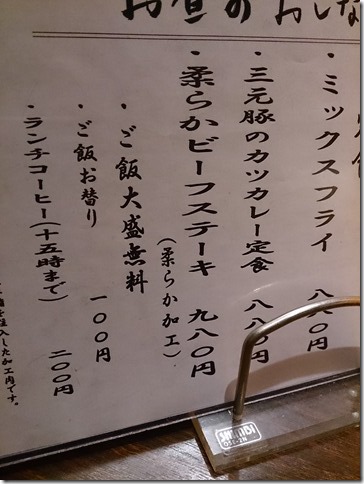 お昼のおしな
・ミックスフライ 八八〇円
・三元豚のカツカレー定食 八八〇円
・柔らかビーフステーキ 九八〇円
(柔らか加工)
・ご飯大盛無料
・ご飯お替り 一〇〇円
・ランチコーヒー(十五時まで) 二〇〇円
注入した加工肉です。